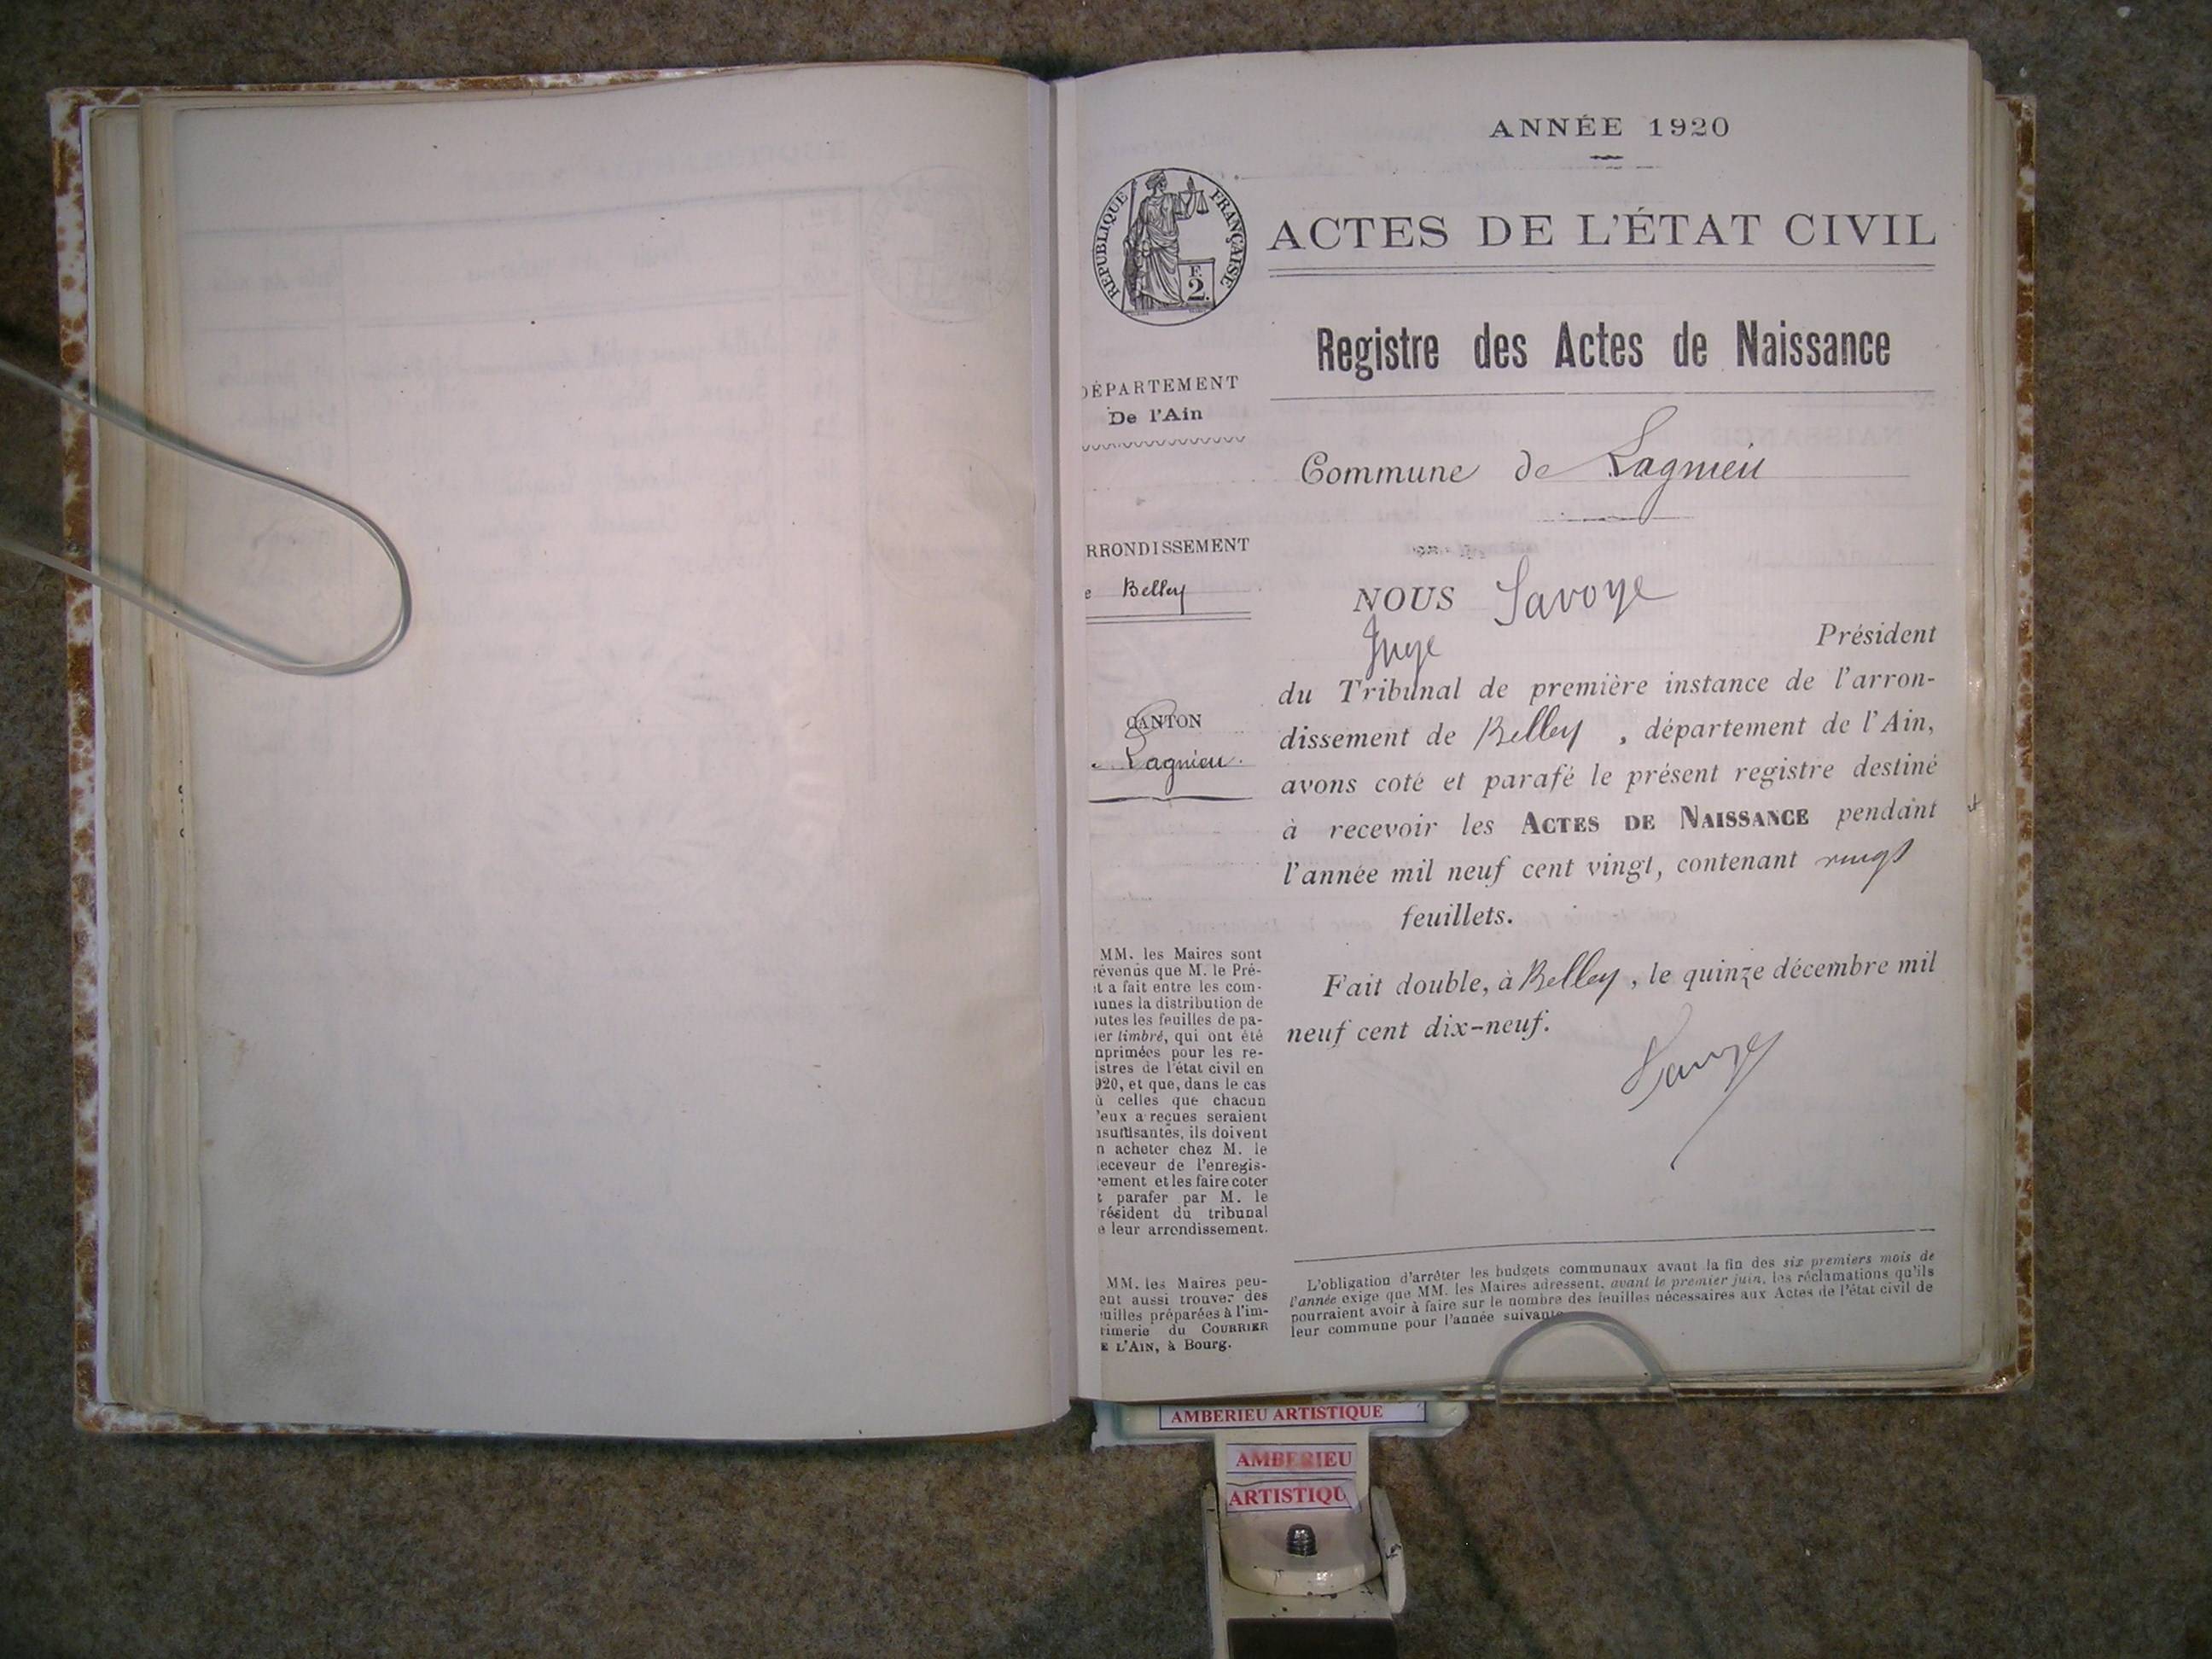 ANNÉE 1920
RÉPUBLIQUE FRANÇAISE
F.
2.
ACTES DE L'ÉTAT CIVIL
Registre des Actes de Naissance
ÉPARTEMENT
De l'Ain
RRONDISSEMENT
e Belley
CANTON
Lagnieu.
MM. les Maires sont
révenus que M. le Pré-
t a fait entre les com-
unes la distribution de
outes les feuilles de pa-
ier timbré, qui ont été
mprimées pour les re-
istres de l'état civil en
920, et que, dans le cas
ù celles que chacun
'eux a reçues seraient
nsuffisantes, ils doivent
n acheter chez M. le
eceveur de l'enregis-
rement et les faire coter
t parafer par M. le
résident du tribunal
e leur arrondissement.
MM. les Maires peu-
ent aussi trouver des
uilles préparées à l'im-
rimerie du COURRIER
E L'AIN, à Bourg.
Commune de Lagnieu
NOUS Savoye
Juge Président
du Tribunal de première instance de l'arron-
dissement de Belley , département de l'Ain,
avons coté et parafé le présent registre destiné
à recevoir les ACTES DE NAISSANCE pendant
l'année mil neuf cent vingt, contenant vingt
feuillets.
Fait double, à Belley, le quinze décembre mil
neuf cent dix-neuf.
Savoye
L'obligation d'arrêter les budgets communaux avant la fin des six premiers mois de
l'année exige que MM. les Maires adressent, avant le premier juin, les réclamations qu'ils
pourraient avoir à faire sur le nombre des feuilles nécessaires aux Actes de l'état civil de
leur commune pour l'année suivante
AMBERIEU ARTISTIQUE
AMBERIEU
ARTISTIQU